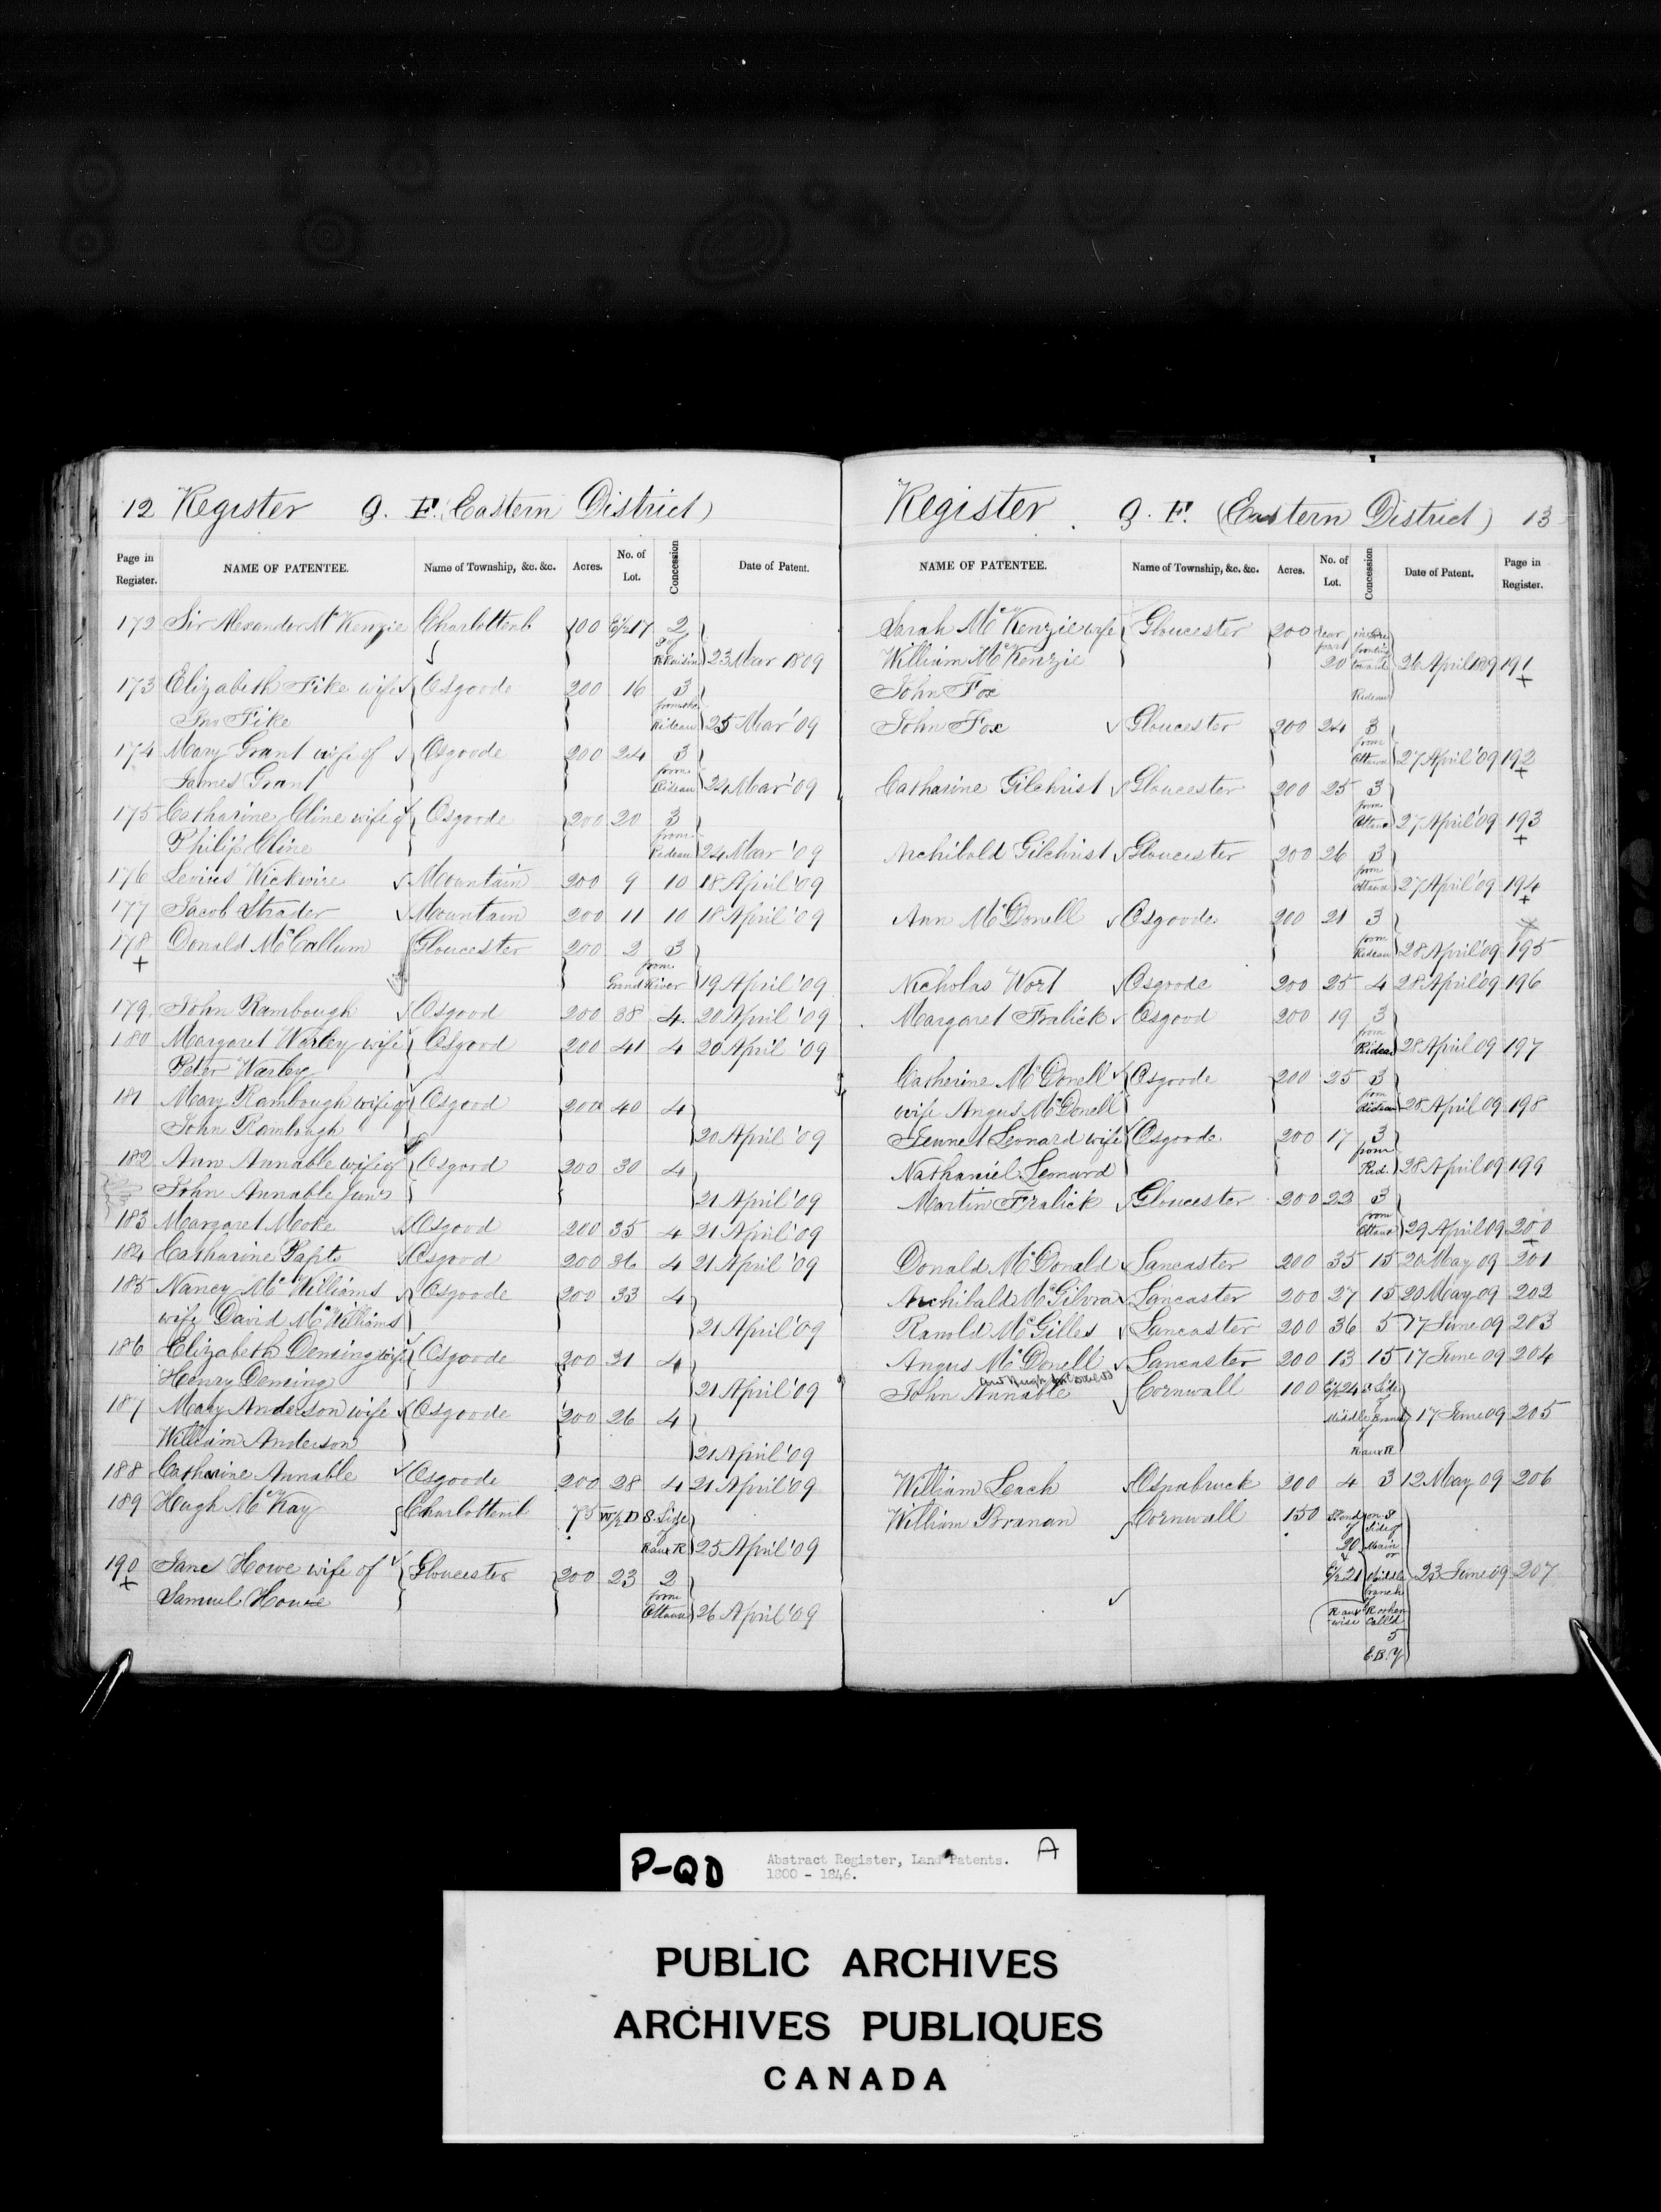 12 Register G. F. (Eastern District)
Page in Register. NAME OF PATENTEE. Name of Township, &c. &c. Acres. No. of Lot. Concession Date of Patent.
172 Sir Alexander McKenzie Charlottenb 100 E½ 17 2
S of
R Raisin 23 Mar 1809
173 Elizabeth Fike wife Osgoode 200 16 3
from the
Jno Fike Rideau 25 Mar '09
174 Mary Grant wife of Osgoode 200 24 3
from
James Grant Rideau 24 Mar '09
175 Catharine Cline wife of Osgoode 200 20 3
from
Philip Cline Rideau 24 Mar '09
176 Levius Wickwire Mountain 200 9 10 18 April '09
177 Jacob Strader Mountain 200 11 10 18 April '09
178 Donald McCallum Gloucester 200 2 3
+ from
Grand River 19 April '09
179 John Rambough Osgood 200 38 4 20 April '09
180 Margaret Warley wife Osgood 200 41 4 20 April '09
Peter Warley
181 Mary Rambough wife of Osgood 200 40 4
John Rambough 20 April '09
182 Ann Annable wife of Osgood 200 30 4
John Annable Junr 21 April '09
183 Margaret Moke Osgood 200 35 4 21 April '09
184 Catharine Papts Osgood 200 36 4 21 April '09
185 Nancy McWilliams Osgoode 200 33 4
wife David McWilliams 21 April '09
186 Elizabeth Dening wife Osgoode 200 31 4
Henry Dening 21 April '09
187 Mary Anderson wife Osgoode 200 26 4
William Anderson 21 April '09
188 Catharine Annable Osgoode 200 28 4 21 April '09
189 Hugh McKay Charlottenb 75 W½ D S. Side
of
Raux R 25 April '09
190 Jane Howe wife of Gloucester 200 23 2
+ from
Samuel Howe Ottawa 26 April '09
Register G. F. (Eastern District) 13
NAME OF PATENTEE. Name of Township, &c. &c. Acres. No. of Lot. Concession Date of Patent. Page in Register.
Sarah McKenzie wife Gloucester 200 rear
part fronting
William McKenzie 20 towards 26 April 1809 191
+
John Fox Rideau
John Fox Gloucester 200 24 3
from
Ottawa 27 April '09 192
+
Catharine Gilchrist Gloucester 200 25 3
from
Ottawa 27 April '09 193
+
Archibald Gilchrist Gloucester 200 26 3
from
Ottawa 27 April '09 194
+
Ann McDonell Osgoode 200 21 3
from
Rideau 28 April '09 195
Nicholas Wort Osgoode 200 25 4 28 April '09 196
Margaret Fralick Osgood 200 19 3
from
Rideau 28 April 09 197
Catherine McDonell Osgoode 200 25 3
from
wife Angus McDonell Rideau 28 April 09 198
Jennet Leonard wife Osgoode 200 17 3
from
Nathaniel Leonard Rid. 28 April 09 199
Martin Fralick Gloucester 200 22 3
from
Ottawa 29 April 09 200
+
Donald McDonald Lancaster 200 35 15 20 May 09 201
Archibald McGilvra Lancaster 200 27 15 20 May 09 202
Ranold McGilles Lancaster 200 36 5 17 June 09 203
Angus McDonell Lancaster 200 13 15 17 June 09 204
and Hugh
John Annable Cornwall 100 E½ 24 S Side
of
Middle Branch 17 June 09 205
of
Raux R
William Leach Osnabruck 200 4 3 12 May 09 206
William Branan Cornwall 150 on S
of Side of
20 Main
& or
E½ 21 Middle 23 June 09 207
branch
Raux R other
wise Called
5
C. B. Y
P-QD
Abstract Register, Land Patents.
1800 - 1846.
A
PUBLIC ARCHIVES
ARCHIVES PUBLIQUES
CANADA